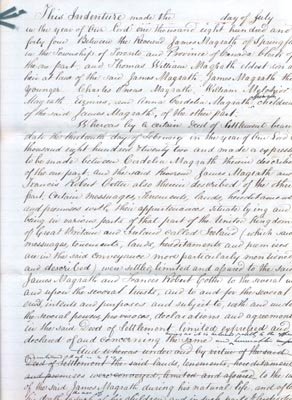 This Indenture made the day of July
in the year of our Lord one thousand eight hundred and
forty four Between the Reverend James Magrath of Springfi
in the Township of Toronto and Province of Canada Clerk of
the one part, and Thomas William Magrath eldest son a
heir at law of the said James Magrath, James Magrath the
younger Charles Owens Magrath, William
Magrath Esquires, and Anna Cordelia Magrath, children
of the said James Magrath, of the other part.
Whereas by a certain Deed of Settlement bearing
date the thirteenth day of in the year of our Lord
thousand eight hundred twenty two and made or expresse
to be made between Cordelia Magrath therein described
of the one part, and the said Reverend James Magrath and
Francis Robert also therein described of the other
part, Certain messuages, tenements, lands, hereditaments
and premises with their appurtenances situate lying and
being in various parts of that part of the United Kingdom
of Great Britain and Ireland called Ireland (which said
messuages, tenements, lands, hereditaments and premises
are in the said conveyance more particularly mentioned
and described) were settled, limited and assured to the said
James Magrath and Francis Robert in the several
and upon the several trusts, and to and for the several
and intents and purposes and subject to, with and under
the several powers provisoes, declarations and agreements
in the said Deed of Settlement limited expressed and
declared of and concerning the same
And whereas under and by virtue of the said
Deed of Settlement the said lands, tenements, hereditaments
and premises were conveyed, limited and assured to the
of the said James Magrath during his natural life, and after